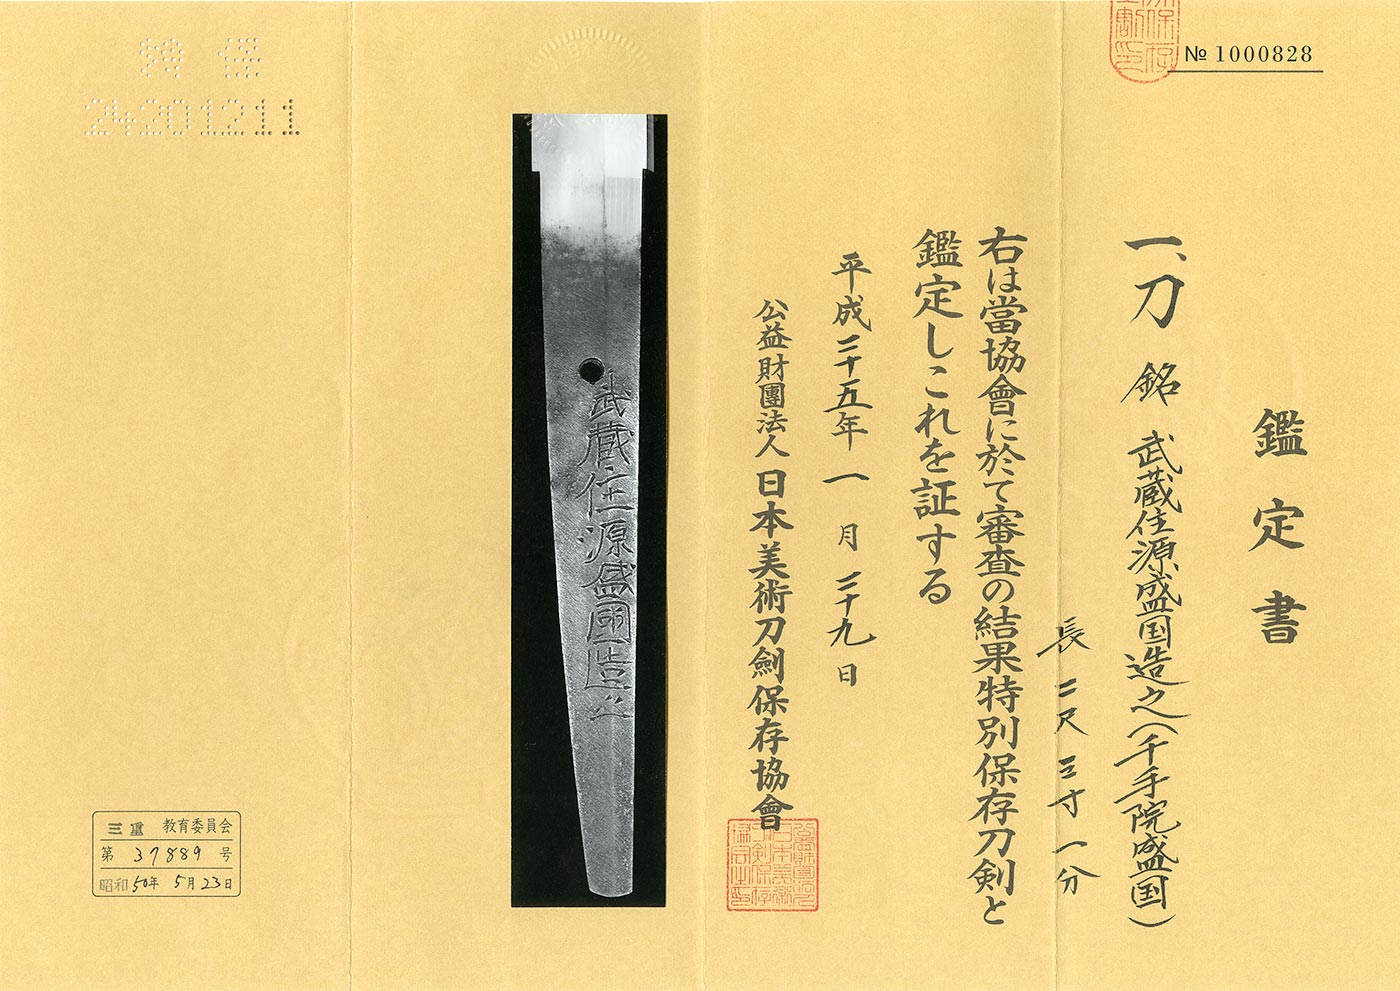 № 1000828
鑑定書
一、刀 銘 武蔵住源盛国造之(千手院盛国)
長二尺三寸一分
右は當協會に於て審査の結果特別保存刀剣と
鑑定しこれを証する
平成二十五年一月二十九日
公益財團法人日本美術刀劍保存協會
武蔵住源盛國造之
特保
24201211
三重教育委員会
第37889号
昭和50年5月23日